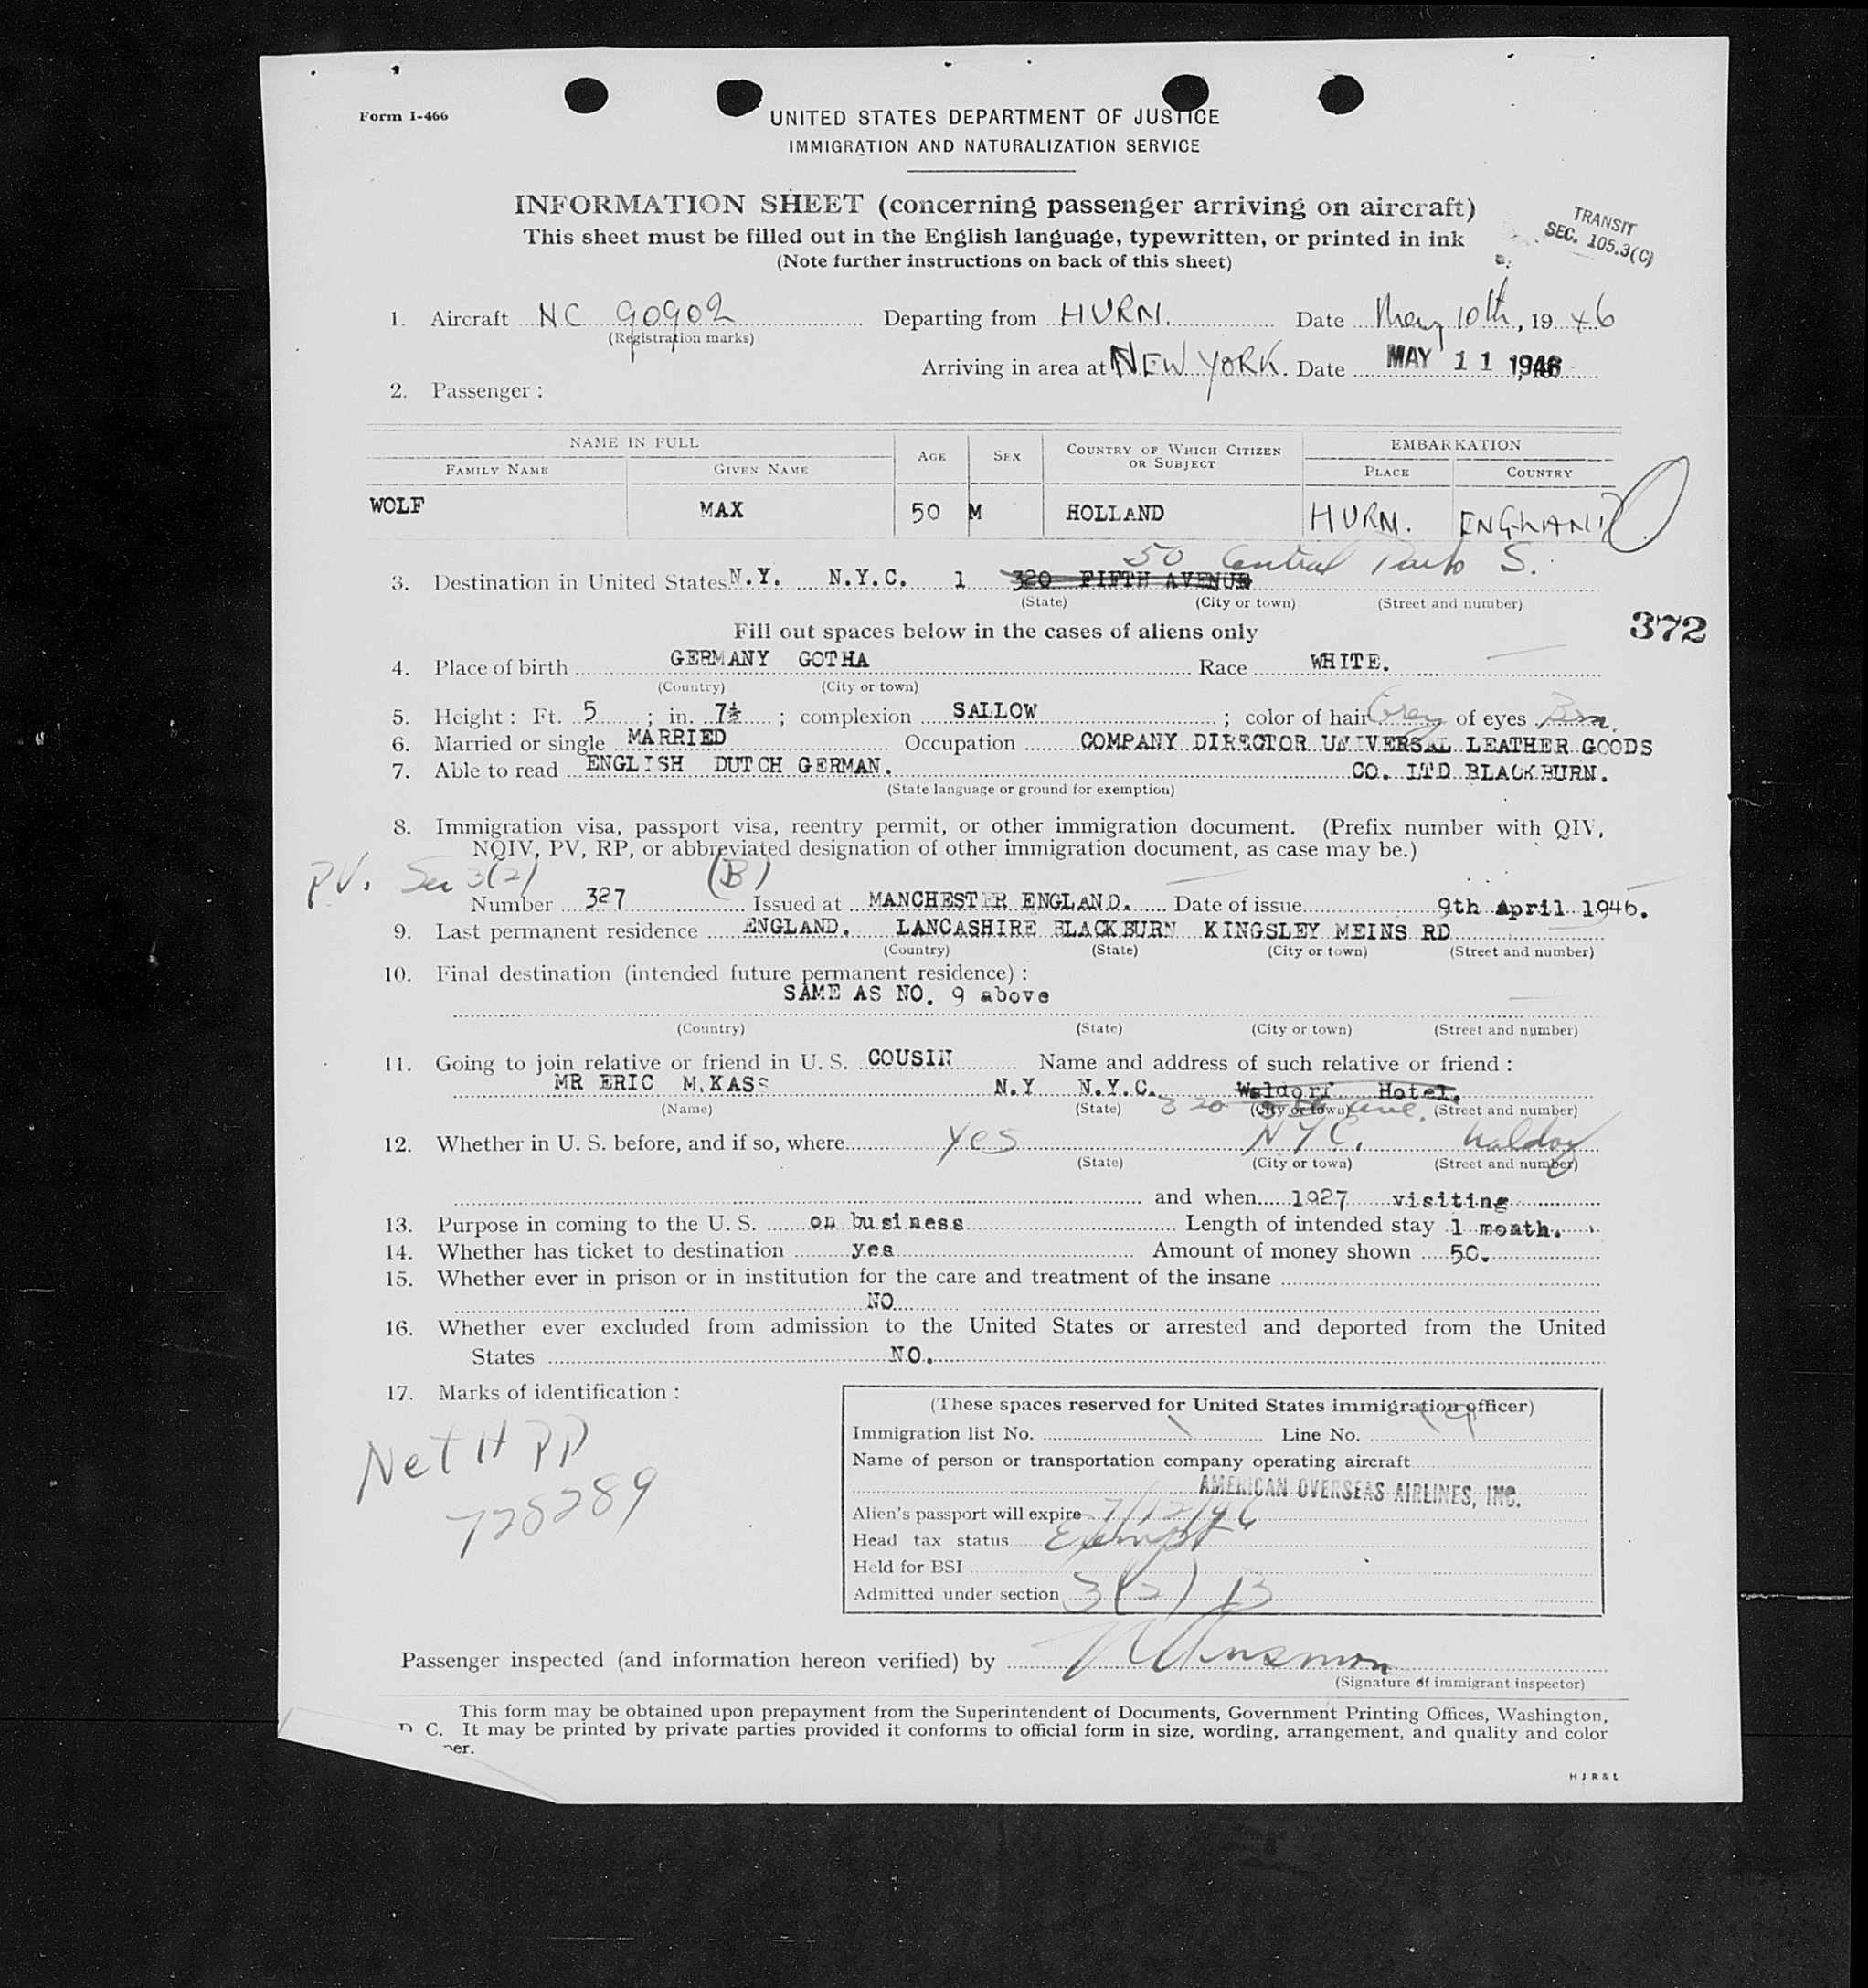 Form I-466
UNITED STATES DEPARTMENT OF JUSTICE
IMMIGRATION AND NATURALIZATION SERVICE
INFORMATION SHEET (concerning passenger arriving on aircraft)
This sheet must be filled out in the English language, typewritten, or printed in ink
(Note further instructions on back of this sheet)
TRANSIT
SEC. 105.3(C)
1. Aircraft NC 90902 Departing from HURN. Date May 10th, 1946
(Registration marks)
Arriving in area at NEW YORK. Date MAY 11 1946
2. Passenger:
NAME IN FULL AGE SEX COUNTRY OF WHICH CITIZEN OR SUBJECT EMBARKATION
FAMILY NAME GIVEN NAME PLACE COUNTRY
WOLF MAX 50 M HOLLAND HURN. ENGLAND
50 Central Park S.
3. Destination in United States N.Y. N.Y.C. 1 320 FIFTH AVENUE
(State) (City or town) (Street and number)
Fill out spaces below in the cases of aliens only
372
4. Place of birth GERMANY GOTHA Race WHITE.
(Country) (City or town)
5. Height: Ft. 5 ; in. 7½ ; complexion SALLOW ; color of hair Grey of eyes Brn.
6. Married or single MARRIED Occupation COMPANY DIRECTOR UNIVERSAL LEATHER GOODS
7. Able to read ENGLISH DUTCH GERMAN. CO. LTD BLACKBURN.
(State language or ground for exemption)
8. Immigration visa, passport visa, reentry permit, or other immigration document. (Prefix number with QIV,
NQIV, PV, RP, or abbreviated designation of other immigration document, as case may be.)
PV. Sec 3(2) (B)
Number 327 Issued at MANCHESTER ENGLAND. Date of issue 9th April 1946.
9. Last permanent residence ENGLAND. LANCASHIRE BLACKBURN KINGSLEY MEINS RD
(Country) (State) (City or town) (Street and number)
10. Final destination (intended future permanent residence):
SAME AS NO. 9 above
(Country) (State) (City or town) (Street and number)
11. Going to join relative or friend in U. S. COUSIN Name and address of such relative or friend:
MR ERIC M.KASS N.Y N.Y.C. Waldorf Hotel.
(Name) (State) 320 5th Ave. (City or town) (Street and number)
12. Whether in U. S. before, and if so, where yes NYC. Waldorf
(State) (City or town) (Street and number)
and when 1927 visiting
13. Purpose in coming to the U. S. on business Length of intended stay 1 month.
14. Whether has ticket to destination yes Amount of money shown 50.
15. Whether ever in prison or in institution for the care and treatment of the insane
NO
16. Whether ever excluded from admission to the United States or arrested and deported from the United
States NO.
17. Marks of identification:
Net H PP
728289
(These spaces reserved for United States immigration officer)
Immigration list No. Line No.
Name of person or transportation company operating aircraft
AMERICAN OVERSEAS AIRLINES, INC.
Alien's passport will expire 7/12/46
Head tax status Exempt
Held for BSI
Admitted under section 3(2) B
Passenger inspected (and information hereon verified) by
(Signature of immigrant inspector)
This form may be obtained upon prepayment from the Superintendent of Documents, Government Printing Offices, Washington,
D C. It may be printed by private parties provided it conforms to official form in size, wording, arrangement, and quality and color
per.
HJR&L